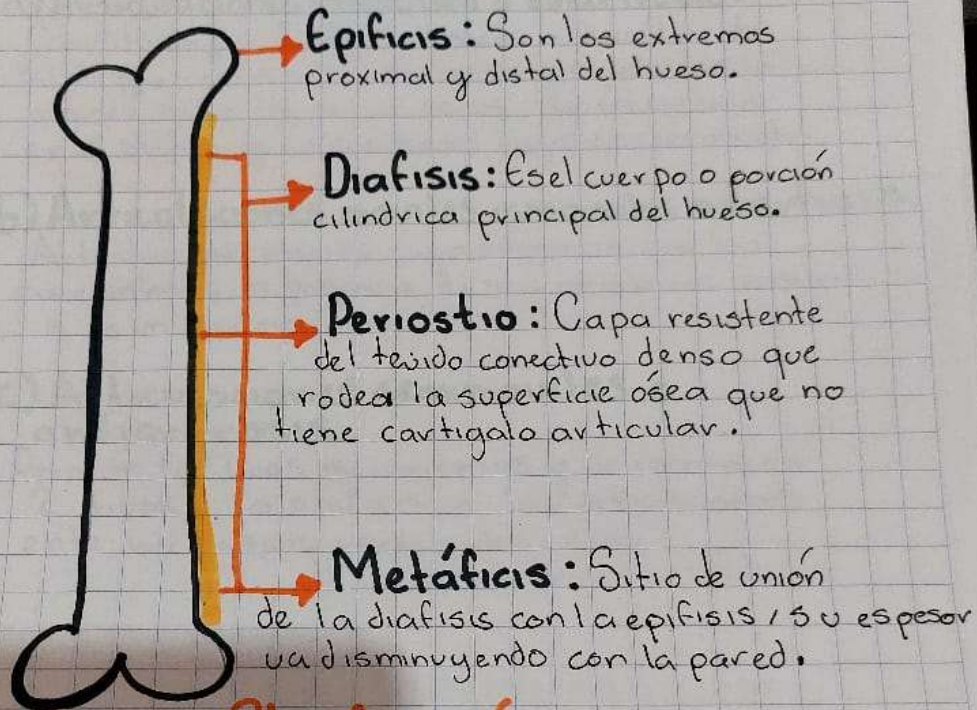 Epificis: Son los extremos
proximal y distal del hueso.
Diafisis: Es el cuerpo o porción
cilindrica principal del hueso.
Periostio: Capa resistente
del tejido conectivo denso que
rodea la superficie ósea que no
tiene cartigalo articular.
Metáficis: Sitio de unión
de la diafisis con la epifisis, su espesor
va disminuyendo con la pared.